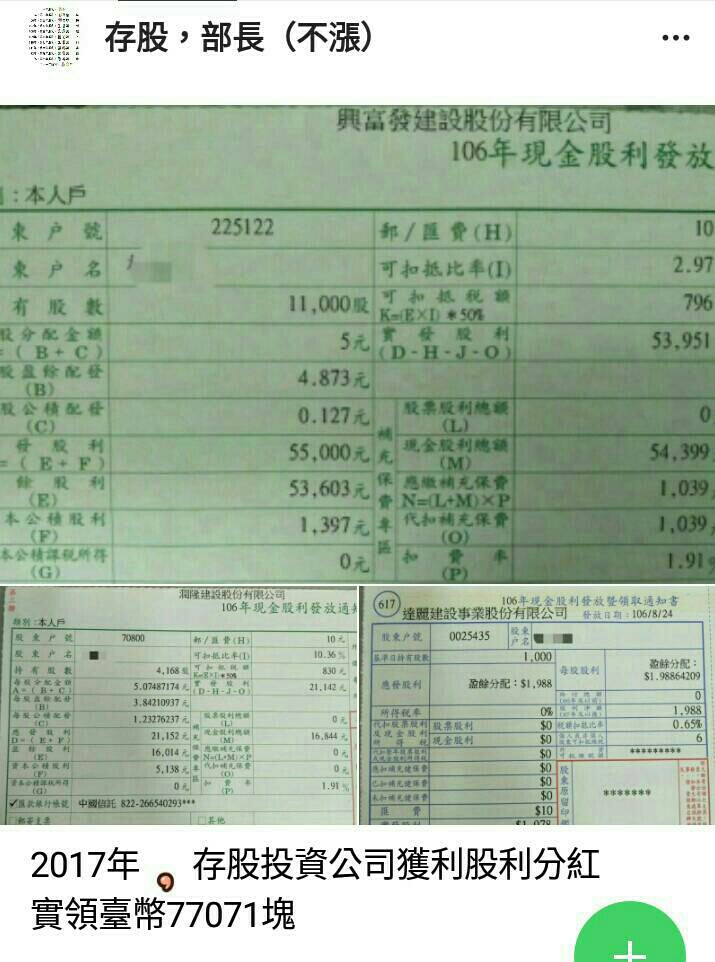 存股，部長（不漲）
興富發建設股份有限公司
106年現金股利發放
：本人戶
東戶號 225122 郵/匯費(H) 10
東戶名 可扣抵比率(I) 2.97
有股數 11,000股 可扣抵稅額 K=(E×I)*50% 796
股分配金額 =(B+C) 5元 實發股利 (D-H-J-O) 53,951
股盈餘配發 (B) 4.873元
股公積配發 (C) 0.127元 股票股利總額 (L) 0
發股利 =(E+F) 55,000元 現金股利總額 (M) 54,399
餘股利 (E) 53,603元 應繳補充保費 N=(L+M)×P 1,039
本公積股利 (F) 1,397元 代扣補充保費 (O) 1,039
本公積課稅所得 (G) 0元 扣費率 (P) 1.91%
補充保費專區
潤隆建設股份有限公司
106年現金股利發放通
類別：本人戶
股東戶號 70800 郵/匯費(H) 10元
股東戶名 可扣抵比率(I) 10.36%
持有股數 4,168股 可扣抵稅額 K=(E×I)*50% 830元
每股分配金額 A=(B+C) 5.07487174元 實發股利 (D-H-J-O) 21,142元
每股盈餘配發 (B) 3.84210937元
每股公積配發 (C) 1.23276237元 股票股利總額 (L) 0元
應發股利 D=(E+F) 21,152元 現金股利總額 (M) 16,844元
盈餘股利 (E) 16,014元 應繳補充保費 N=(L+M)×P 0元
資本公積股利 (F) 5,138元 代扣補充保費 (O) 0元
資本公積課稅所得 (G) 0元 扣費率 (P) 1.91%
✓匯款銀行帳號 中國信託 822-266540293***
□郵寄支票 □其他
617
106年現金股利發放暨領取通知書
達麗建設事業股份有限公司 發放日期：106/8/24
股東戶號 0025435 股東戶名
基準日持有股數 1,000 每股股利 盈餘分配：$1.98864209
應發股利 盈餘分配：$1,988
1,988
所得稅率 0% 稅額扣抵比率 0.65%
代扣股票股利及現金股利所得稅 股票股利 $0 6
現金股利 $0 *********
$0
應扣補充健保費 $0 股東原留印鑑
已扣補充健保費 $0 *******
未扣補充健保費 $0
匯費 $10
$1,978
2017年 存股投資公司獲利股利分紅
實領臺幣77071塊